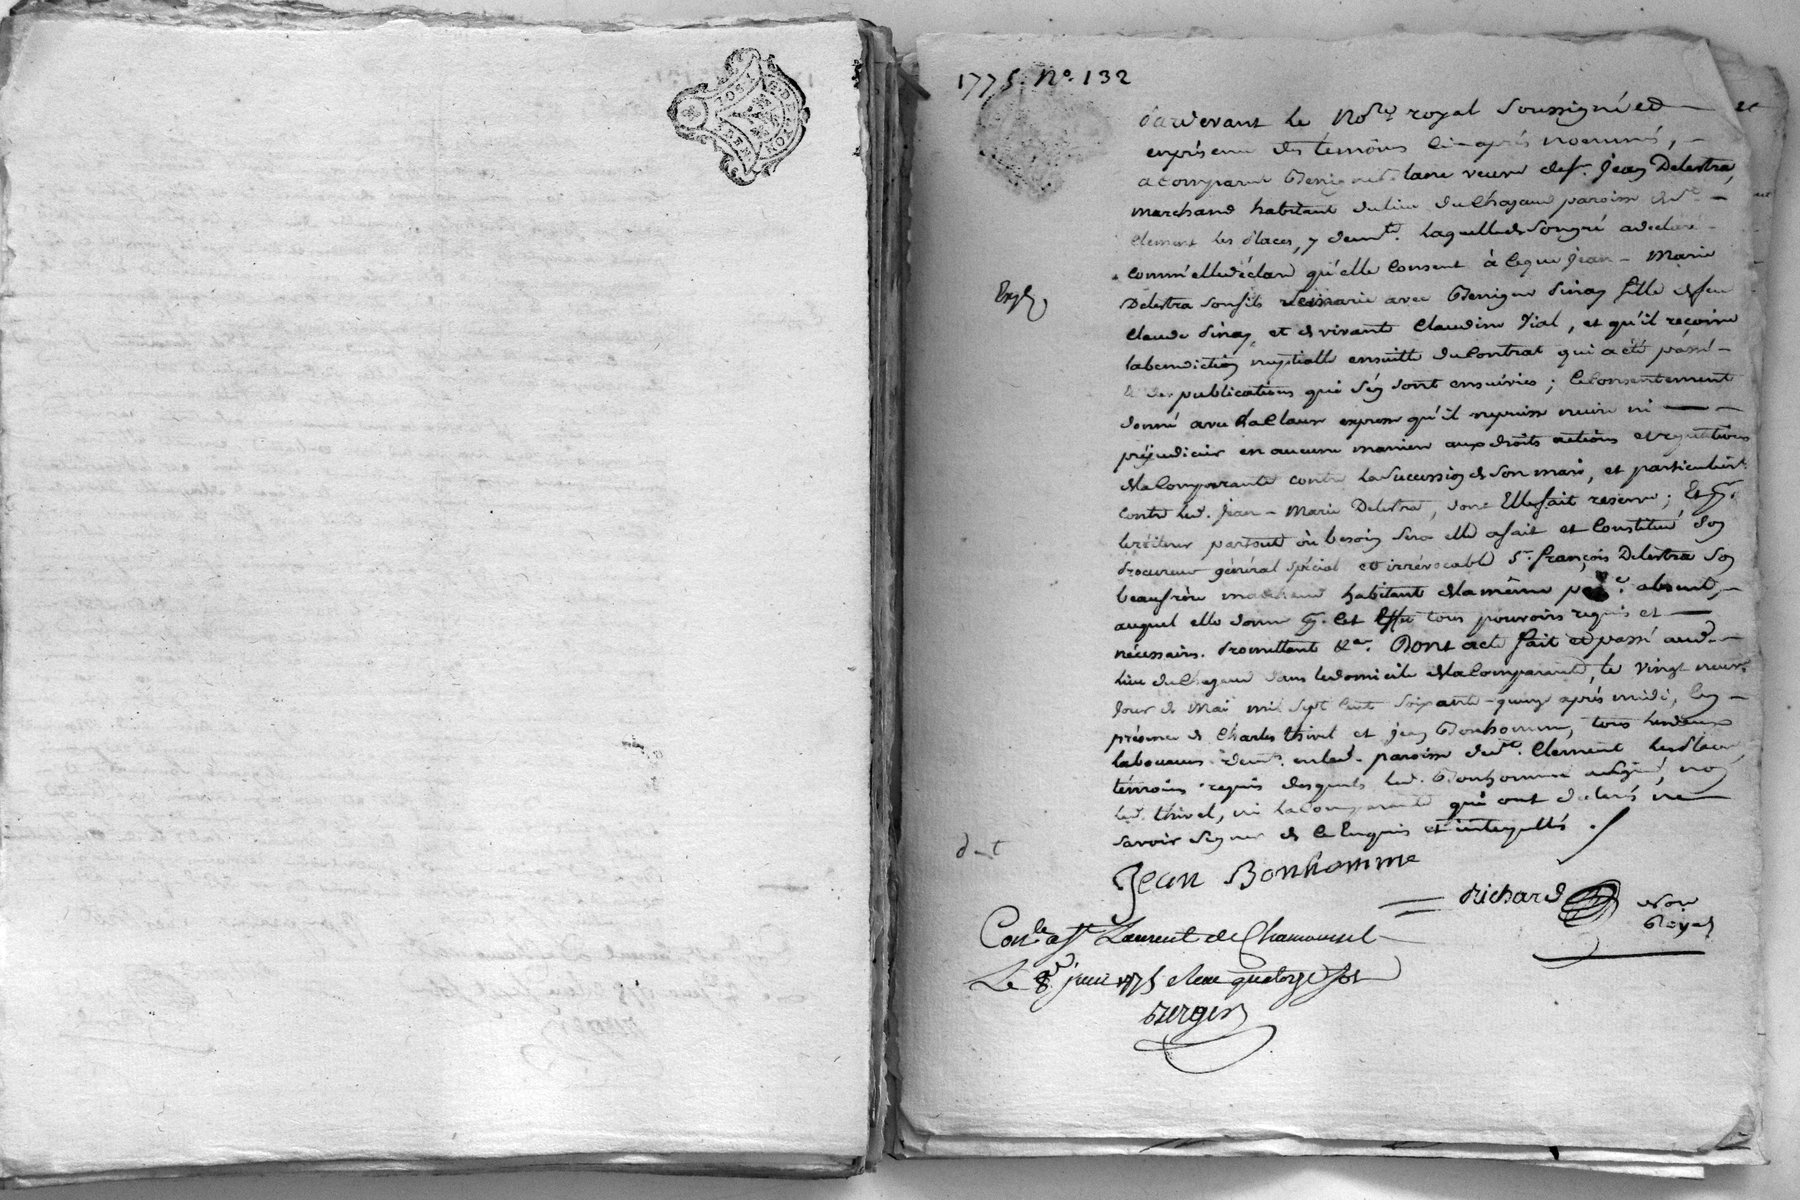 1775. No. 132
Pardevant le No.re royal soussigné et
en présence des témoins ci-après nommés,
a comparu veuve de f. Jean Delestra,
marchand habitant du lieu du Chagaud paroisse de St.
Clement les places, y demt. laquelle de son gré a declaré
comm'elle déclare qu'elle consent à ce que Jean-Marie
Expé.
Delestra son fils se marie avec Benigne Pinay fille de feu
Claude Pinay, et de vivante Claudine Vial, et qu'il reçoive
la benediction nuptialle ensuitte du contrat qui a été passé
& des publications qui s'en sont ensuivies; ce consentement
donné avec la clause expresse qu'il ne puisse nuire ni
préjudicier en aucune maniere aux droits actions et repetitions
de la comparante contre la succession de son mari, et particuliert.
contre led. Jean-Marie Delestra, dont elle fait reserve; Et pr.
le réiterer partout où besoin sera elle a fait et constitué son
procureur général spécial et irrévocable Sr. françois Delestra son
beaufrère marchand habitant de la même p.sse absent,
auquel elle donne pr. cet effet tous pouvoirs requis et
nécessaires. promettant &a. Dont acte fait et passé aud.
lieu du Chagaud dans le domicile de la comparante, le vingt neuve.
jour de Mai mil sept cent soixante-quinze après midi, en
présence de Charles thivel et jean Bonhomme, tous les deux
laboureurs demts. en lad. paroisse de St. Clement les places,
témoins requis desquels led. Bonhomme a signé, non
led. thivel, ni la comparante qui ont declaré ne
savoir signer de ce enquis et interpellés.
Jean Bonhomme
Richard
No.re
Royal
Con.lé a St. Laurent de Chamousset
Le 8e. juin 1775 Reçu quatorze sols
Berger